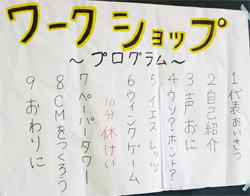 ワークショップ
~プログラム~
1 代表あいさつ
2 自己紹介
3 声おに
4 ウソ?・ホント?
5 イエスレッツ
6 ウィンクゲーム
10分休けい
7 ペーパータワー
8 CMをつくろう
9 おわりに